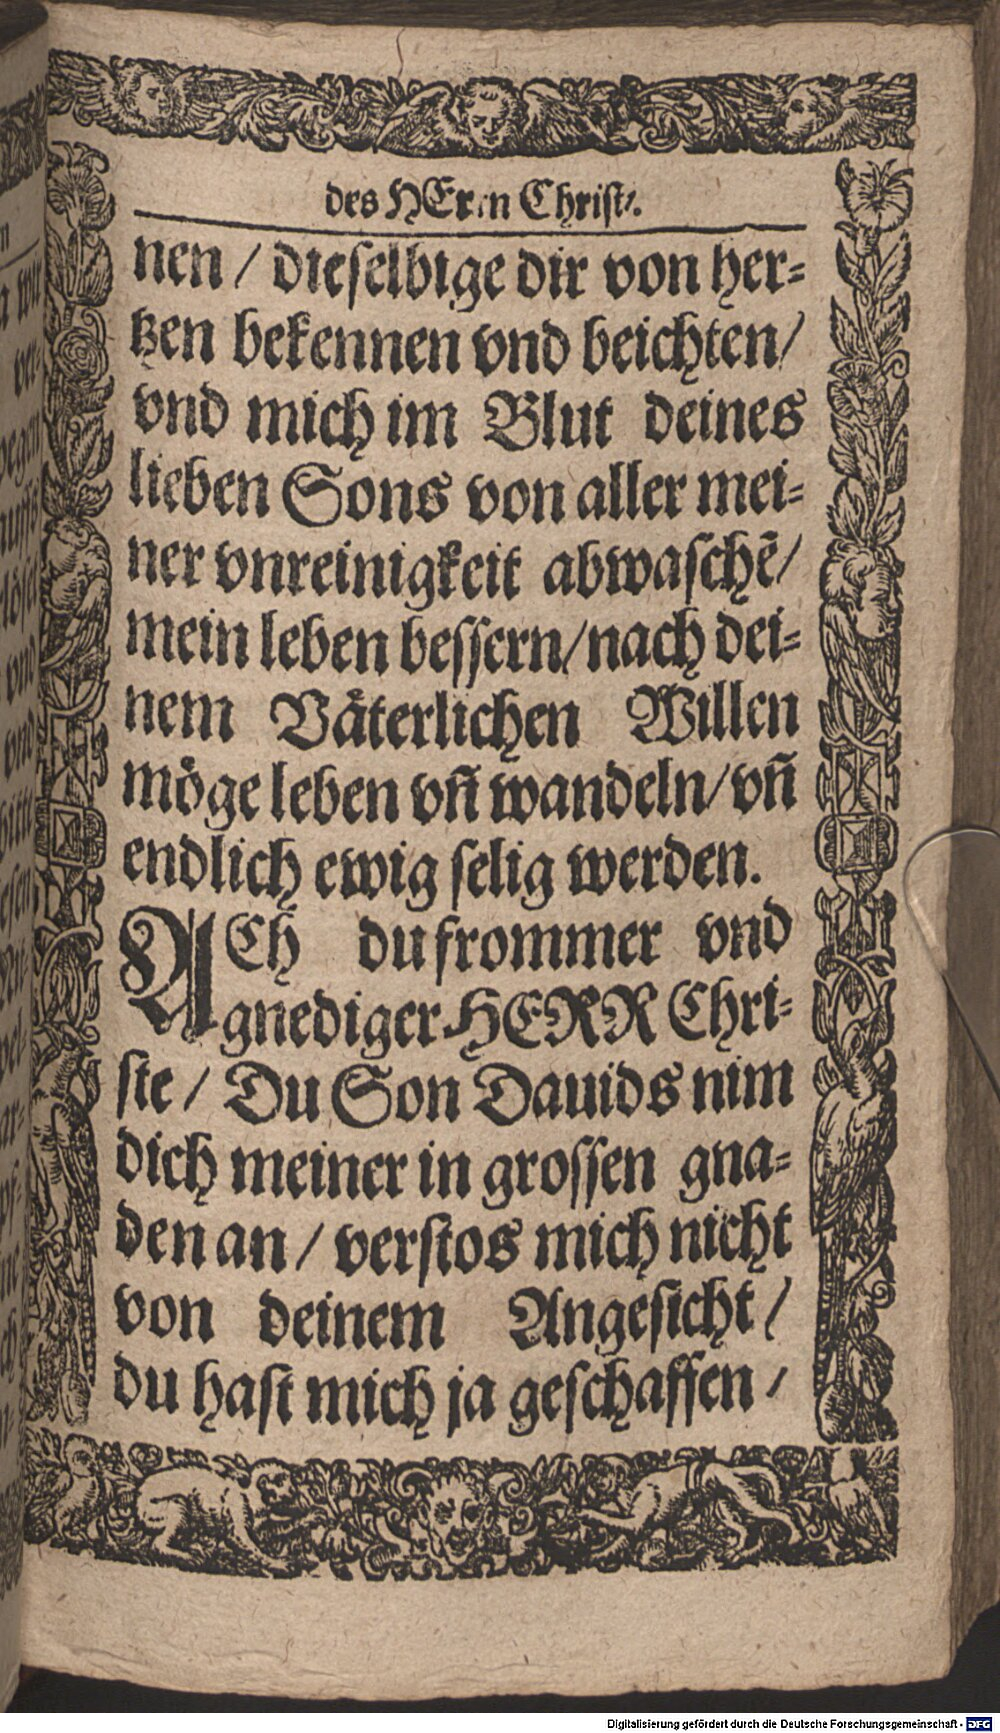 des HErrn Christi.
nen / dieselbige dir von her⸗
tzen bekennen vnd beichten/
vnd mich im Blut deines
lieben Sons von aller mei⸗
ner vnreinigkeit abwaschẽ/
mein leben bessern/nach dei⸗
nem Vaͤterlichen Willen
moͤge leben vñ wandeln/vñ
endlich ewig selig werden.
ACh du frommer vnd
gnediger HERR Chri⸗
ste / Du Son Dauids nim
dich meiner in grossen gna⸗
den an / verstos mich nicht
von deinem Angesicht /
du hast mich ja geschaffen /
Digitalisierung gefördert durch die Deutsche Forschungsgemeinschaft - DFG